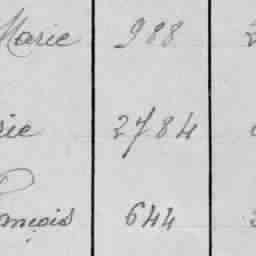 Marie 988
rie 2784
François 644